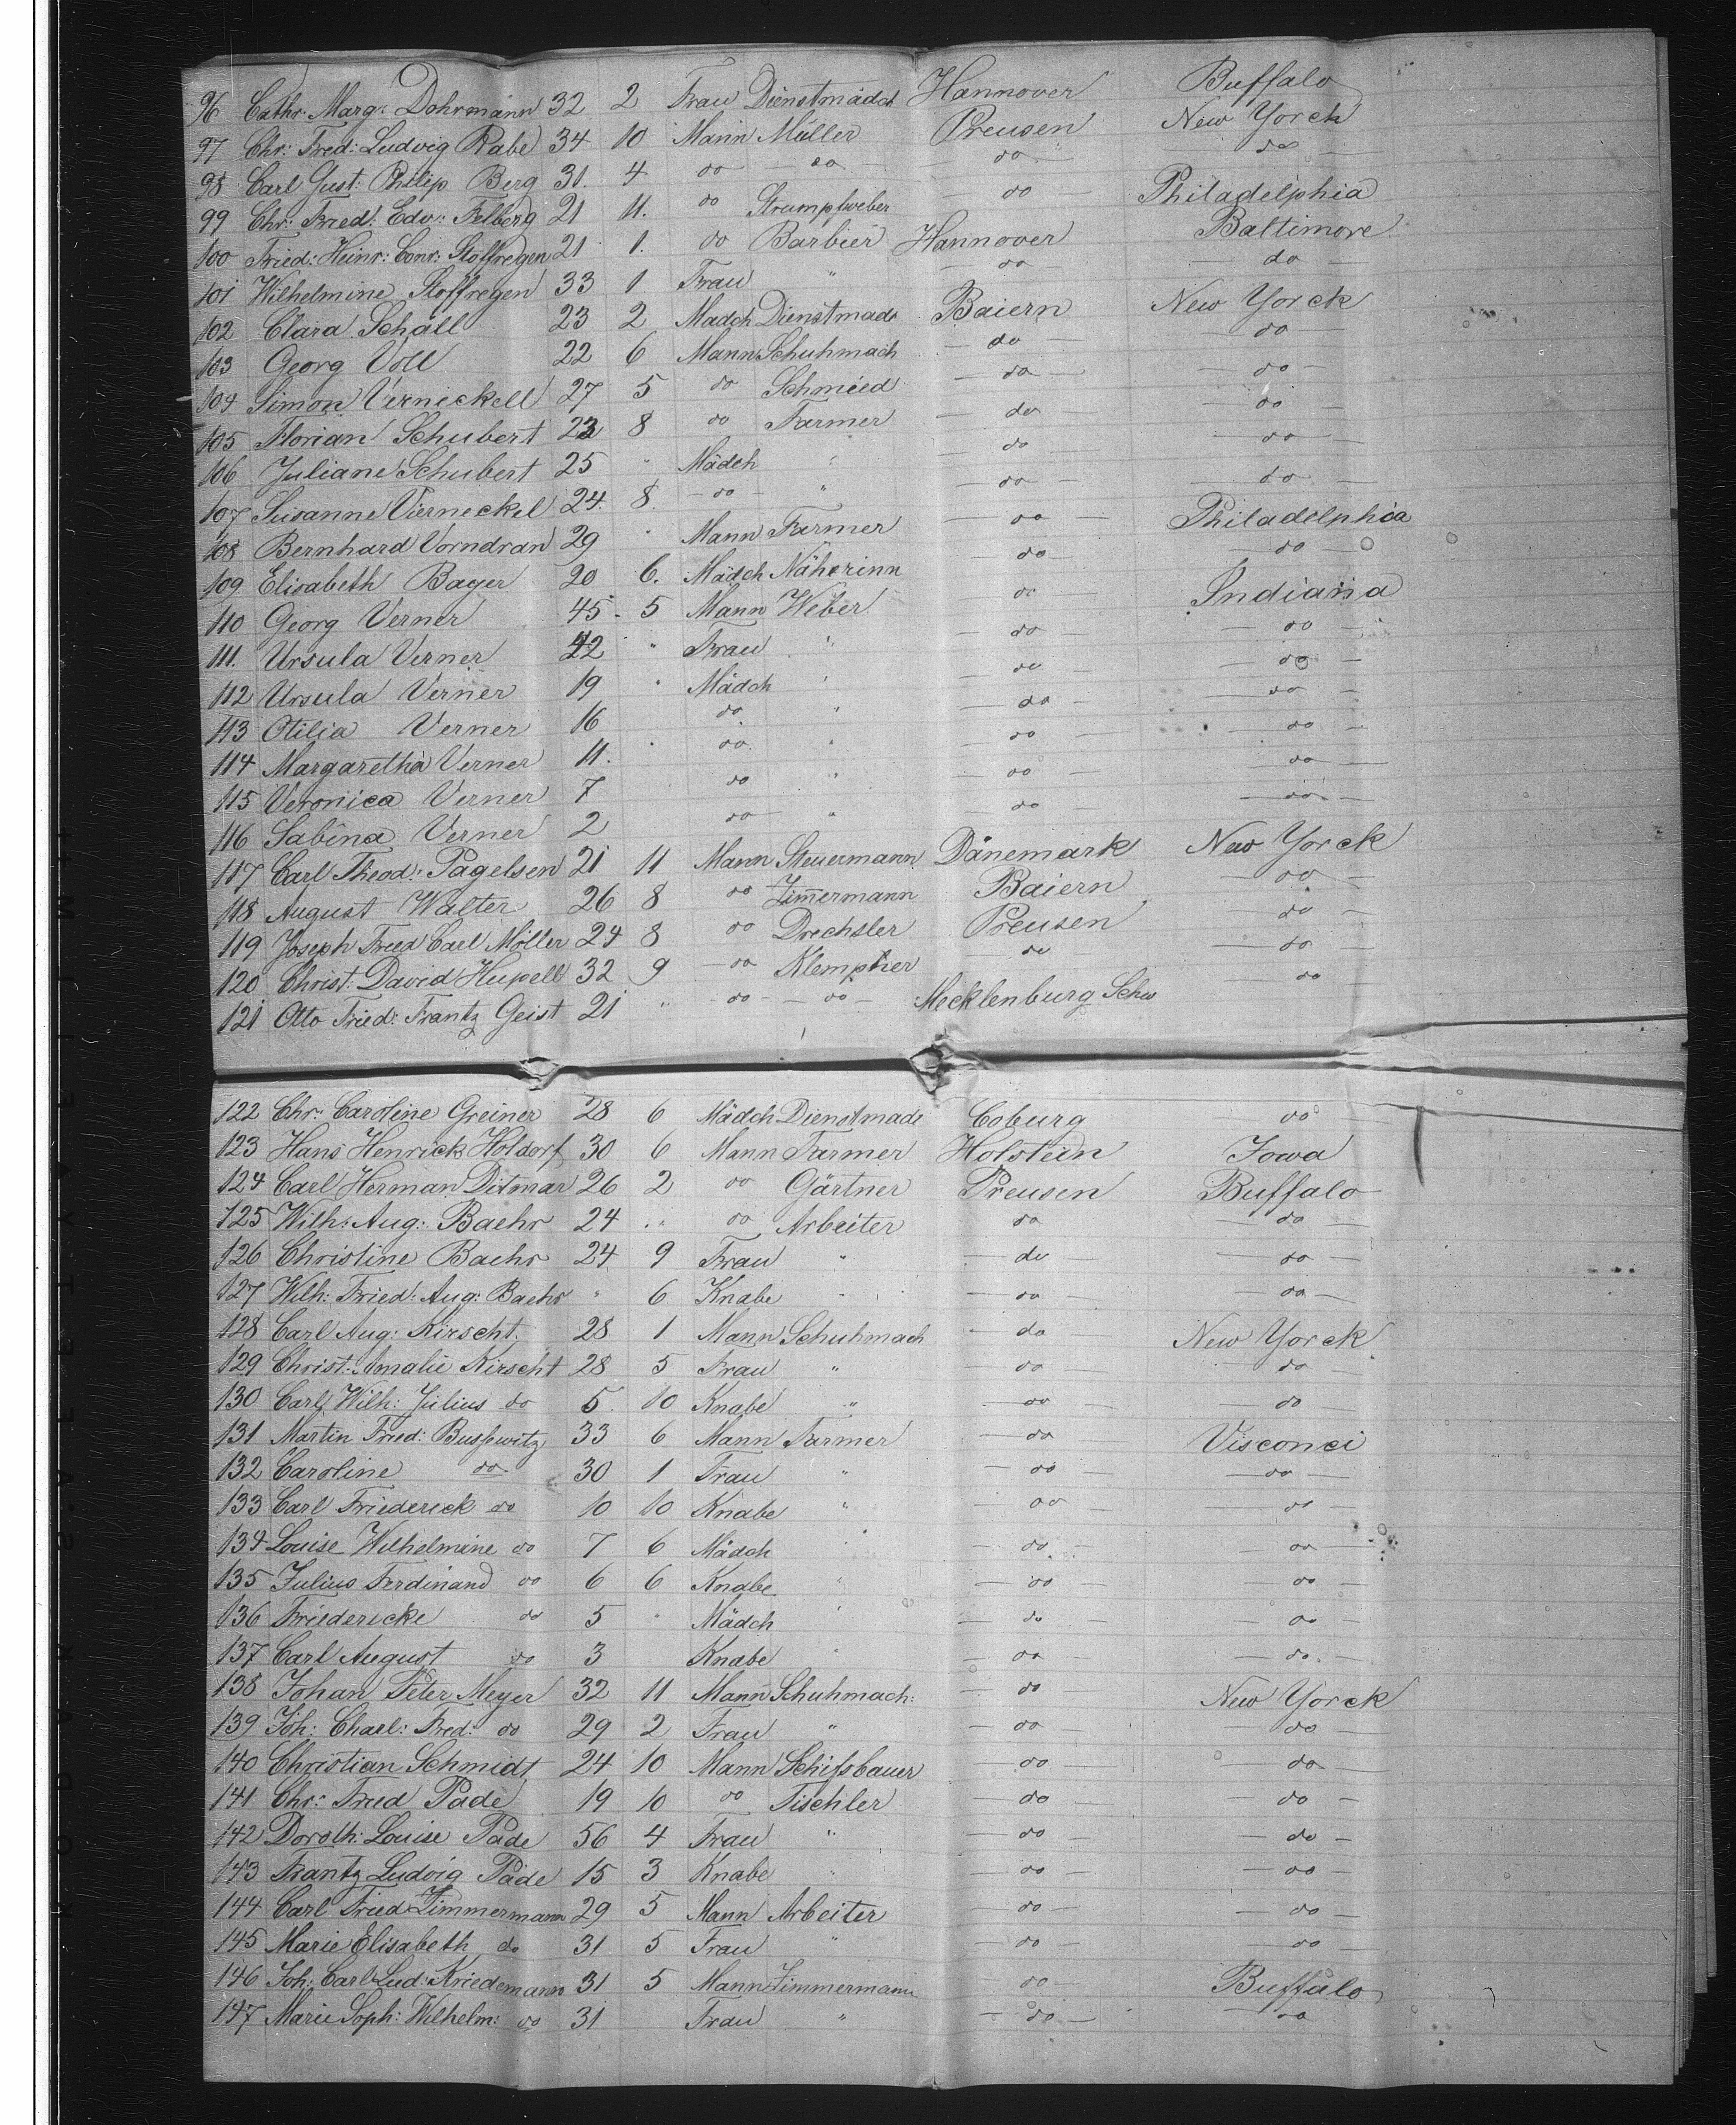 96 Cathr: Marg: Dohrmann 32 2 Frau Dienstmädch Hannover Buffalo
97 Chr: Fred: Ludvig Rabe 34 10 Mann Müller Preusen New Yorck
98 Carl Gust: Philip Berg 31. 4 do — do — — do — — do —
99 Chr: Fried: Edv: Felberg 21 11. do Strumpfweber — do — Philadelphia
100 Fried: Heinr: Conr: Stoffregen 21 1. do Barbier Hannover Baltimore
101 Wilhelmine Stoffregen 33 1 Frau " — do — — do —
102 Clara Schäll 23 2 Madch Dienstmade Baiern New Yorck
103 Georg Voll 22 6 Mann Schuhmach — do — — do —
104 Simon Vernickell 27 5 do Schmied — do — — do —
105 Florian Schubert 23 8 do Farmer — do — — do —
106 Juliane Schubert 25 " Mädch " — do — — do —
107 Susanne Vierneckel 24. 8. — do — " — do — — do —
108 Bernhard Vorndran 29 " Mann Farmer — do — Philadelphia
109 Elisabeth Bayer 20 6. Mädch Näherinn — do — — do —
110 Georg Verner 45 - 5 Mann Weber — do — Indiana
111. Ursula Verner 42 " Frau " — do — — do —
112 Ursula Verner 19 " Mädch " — do — — do —
113 Otilia Verner 16 do " — do — — do —
114 Margaretha Verner 11. " do " — do — — do —
115 Veronica Verner 7 do " — do — — do —
116 Sabina Verner 2 do " — do — — do —
117 Carl Theod: Pagelsen 21 11 Mann Steuermann Dänemark New Yorck
118 August Walter 26 8 do Zimmermann Baiern — do —
119 Joseph Fried Carl Möller 24 8 do Drechsler Preusen — do —
120 Christ: David Hupell 32 9 — do Klempner do — do —
121 Otto Fried: Frantz Geist 21 " — do — — do — Mecklenburg Schw — do
122 Chr: Caroline Greiner 28 6 Mädch Dienstmade Coburg do
123 Hans Henrick Holdorf 30 6 Mann Farmer Holstein Iowa
124 Carl Herman Ditmar 26 2 do Gärtner Preusen Buffalo
125 Wilh: Aug: Baehr 24 " do Arbeiter do — do —
126 Christine Baehr 24 9 Frau " — do — — do —
127 Wilh: Fried: Aug: Baehr " 6 Knabe " — do — — do —
128 Carl Aug: Kirscht. 28 1 Mann Schuhmach — do — New Yorck
129 Christ: Amalie Kirscht 28 5 Frau " — do — — do —
130 Carl Wilh: Julius do 5 10 Knabe " — do — — do —
131 Martin Fried: Bussewitz 33 6 Mann Farmer — do — Visconci
132 Caroline do 30 1 Frau " — do — — do —
133 Carl Friederick do 10 10 Knabe " — do — — do —
134 Louise Wilhelmine do 7 6 Mädch " — do — — do —
135 Julius Ferdinand do 6 6 Knabe " — do — — do —
136 Friedericke do 5 " Mädch " — do — — do —
137 Carl August do 3 Knabe " — do — — do —
138 Johan Peter Meyer 32 11 Mann Schuhmach: — do — New Yorck
139 Joh: Charl: Fred: do 29 2 Frau " — do — — do —
140 Christian Schmidt 24 10 Mann Schifsbauer — do — — do —
141 Chr: Fried Pade 19 10 do Tischler — do — — do —
142 Doroth: Louise Pade 56 4 Frau " — do — — do —
143 Frantz Ludvig Pade 15 3 Knabe " — do — — do —
144 Carl Fried Zimmermann 29 5 Mann Arbeiter — do — — do —
145 Marie Elisabeth do 31 5 Frau " — do — — do —
146 Joh: Carl Lud: Kriedemann 31 5 Mann Zimmermann — do — Buffalo
147 Marie Soph: Wilhelm: do 31 Frau " — do — — do